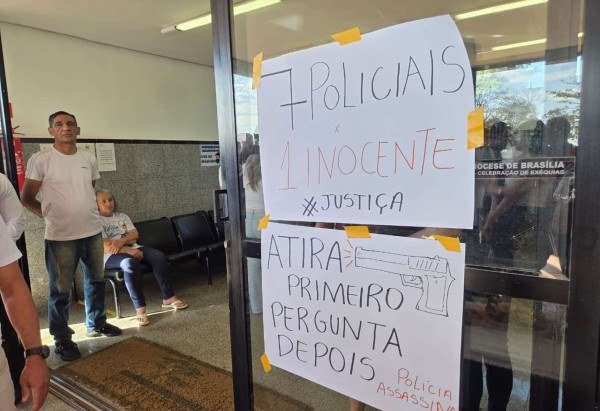 7 POLICIAIS
x
1 INOCENTE
#JUSTIÇA
ATIRA
PRIMEIRO
PERGUNTA
DEPOIS
POLICIA
ASSASSINA
DIOCESE DE BRASÍLIA
CELEBRAÇÃO DE EXÉQUIAS